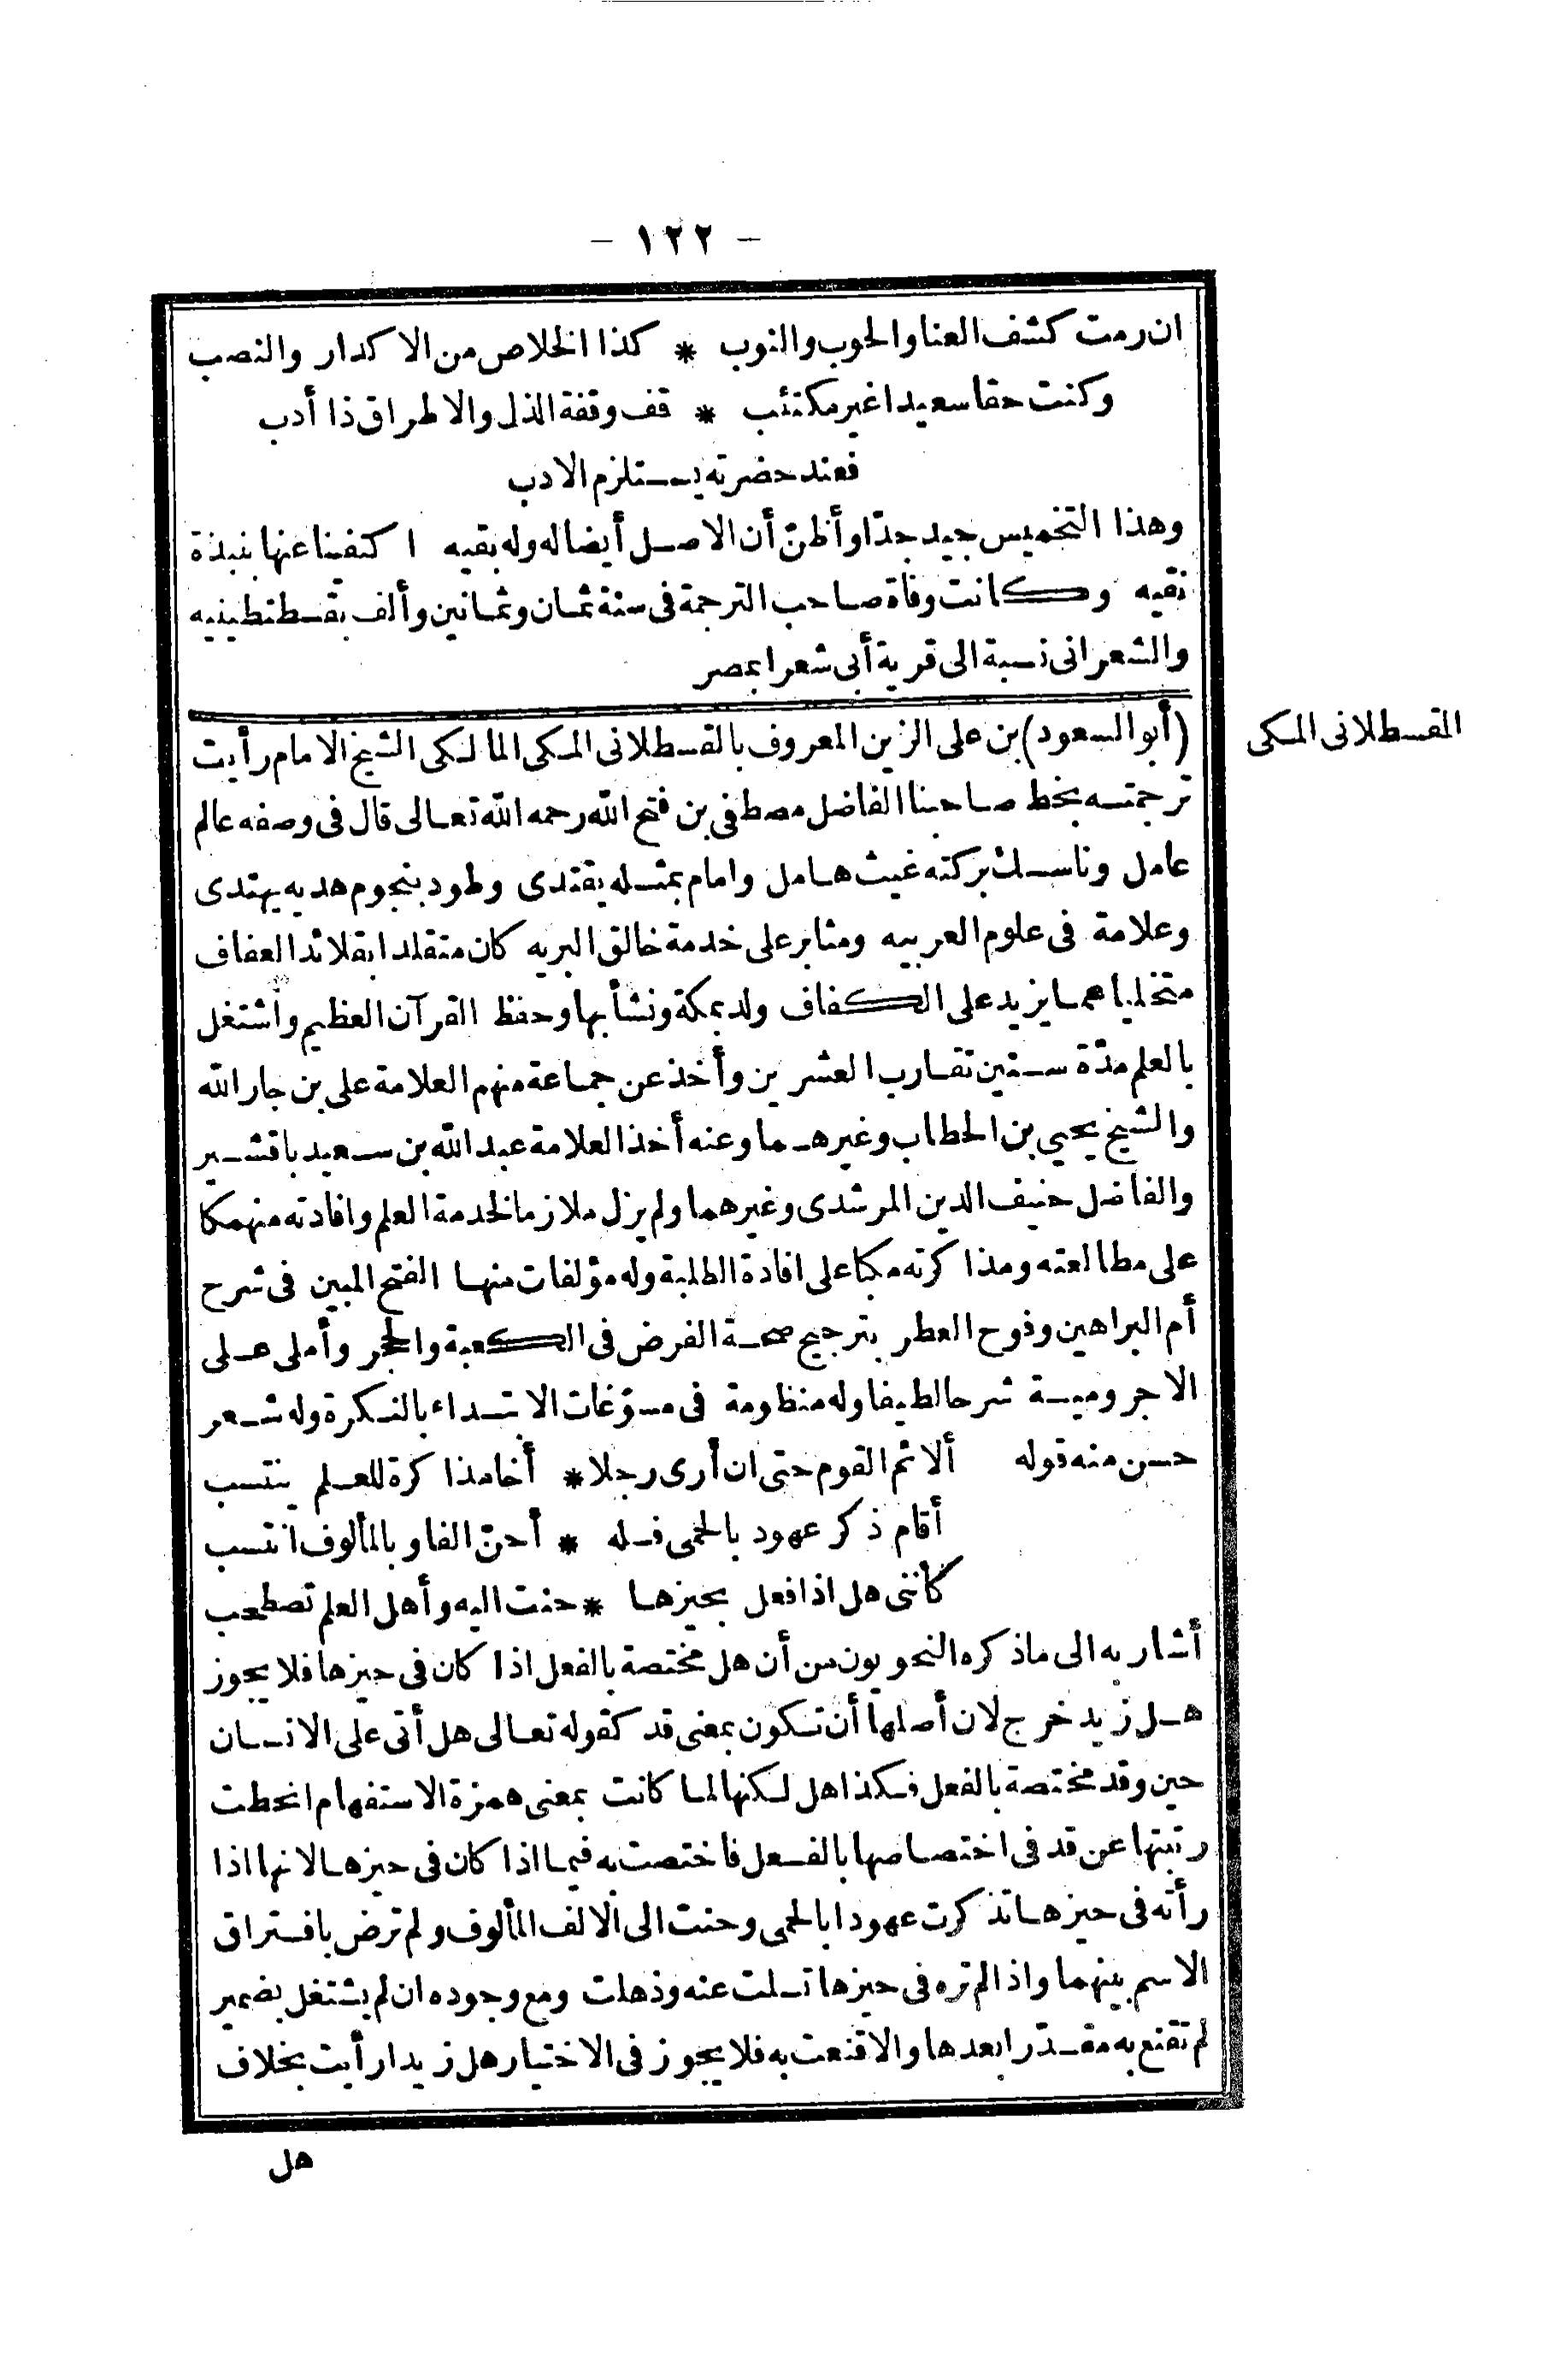 - ١٢٢ -
ان رمت كشف العنا والحوب والنوب * كذا الخلاص من الاكدار والنصب
وكنت حقا سعيدا غير مكتئب * قف وقفة الذل والاطراق ذا أدب
فعند حضرته يستلزم الادب
وهذا التخميس جيد جدّا وأظنّ أن الاصل أيضاله وله بقيه اكتفينا عنها بنبذة
نقيه وكانت وفاة صاحب الترجمة فى سنة ثمان وثمانين وألف بقسطنطينيه
والشعرانى نسبة الى قرية أبى شعرا بمصر
القسطلانى المكى
(أبو السعود) بن على الزين المعروف بالقسطلانى المكى المالكى الشيخ الامام رأيت
ترجمته بخط صاحبنا الفاضل مصطفى بن فتح الله رحمه الله تعالى قال فى وصفه عالم
عامل وناسك بركته غيث هامل وامام بمثله يقتدى وطود بنجوم هديه يهتدى
وعلامة فى علوم العربيه ومثابر على خدمة خالق البريه كان متقلدا بقلائد العفاف
متخليا عما يزيد على الكفاف ولد بمكة ونشأ بها وحفظ القرآن العظيم واشتغل
بالعلم مدّة سنين تقارب العشرين وأخذ عن جماعة منهم العلامة على بن جار الله
والشيخ يحيى بن الحطاب وغيرهما وعنه أخذ العلامة عبد الله بن سعيد باقشير
والفاضل حنيف الدين المرشدى وغيرهما ولم يزل ملازما لخدمة العلم وافادته منهمكا
على مطالعته ومذاكرته مكبا على افادة الطلبة وله مؤلفات منها الفتح المبين فى شرح
أم البراهين وفوح العطر بترجيح صحة الفرض فى الكعبة والحجر وأملى على
الاجرومية شرحا لطيفا وله منظومة فى مسوّغات الابتداء بالنكرة وله شعر
حسن منه قوله ألا ثم القوم حتى ان أرى رجلا * أخا مذاكرة للعلم ينتسب
أقام ذكر عهود بالحمى فله * أحنّ الفا وبالمألوف انتسب
كأننى هل اذا فعل بحيزها * حنت اليه وأهل العلم تصطحب
أشار به الى ماذكره النحويون من أن هل مختصة بالفعل اذا كان فى حيزها فلا يجوز
هل زيد خرج لان أصلها أن تكون بمعنى قد كقوله تعالى هل أتى على الانسان
حين وقد مختصة بالفعل فكذا هل لكنها لما كانت بمعنى همزة الاستفهام انحطت
رتبتها عن قد فى اختصاصها بالفعل فاختصت به فيما اذا كان فى حيزها لانها اذا
رأته فى حيزها تذكرت عهودا بالحمى وحنت الى الالف المألوف ولم ترض بافتراق
الاسم بينهما واذا لم تره فى حيزها تسلت عنه وذهلت ومع وجوده ان لم يشتغل بضمير
لم تقنع به مقدّرا بعدها والا قنعت به فلا يجوز فى الاختيار هل زيدا رأيت بخلاف
هل